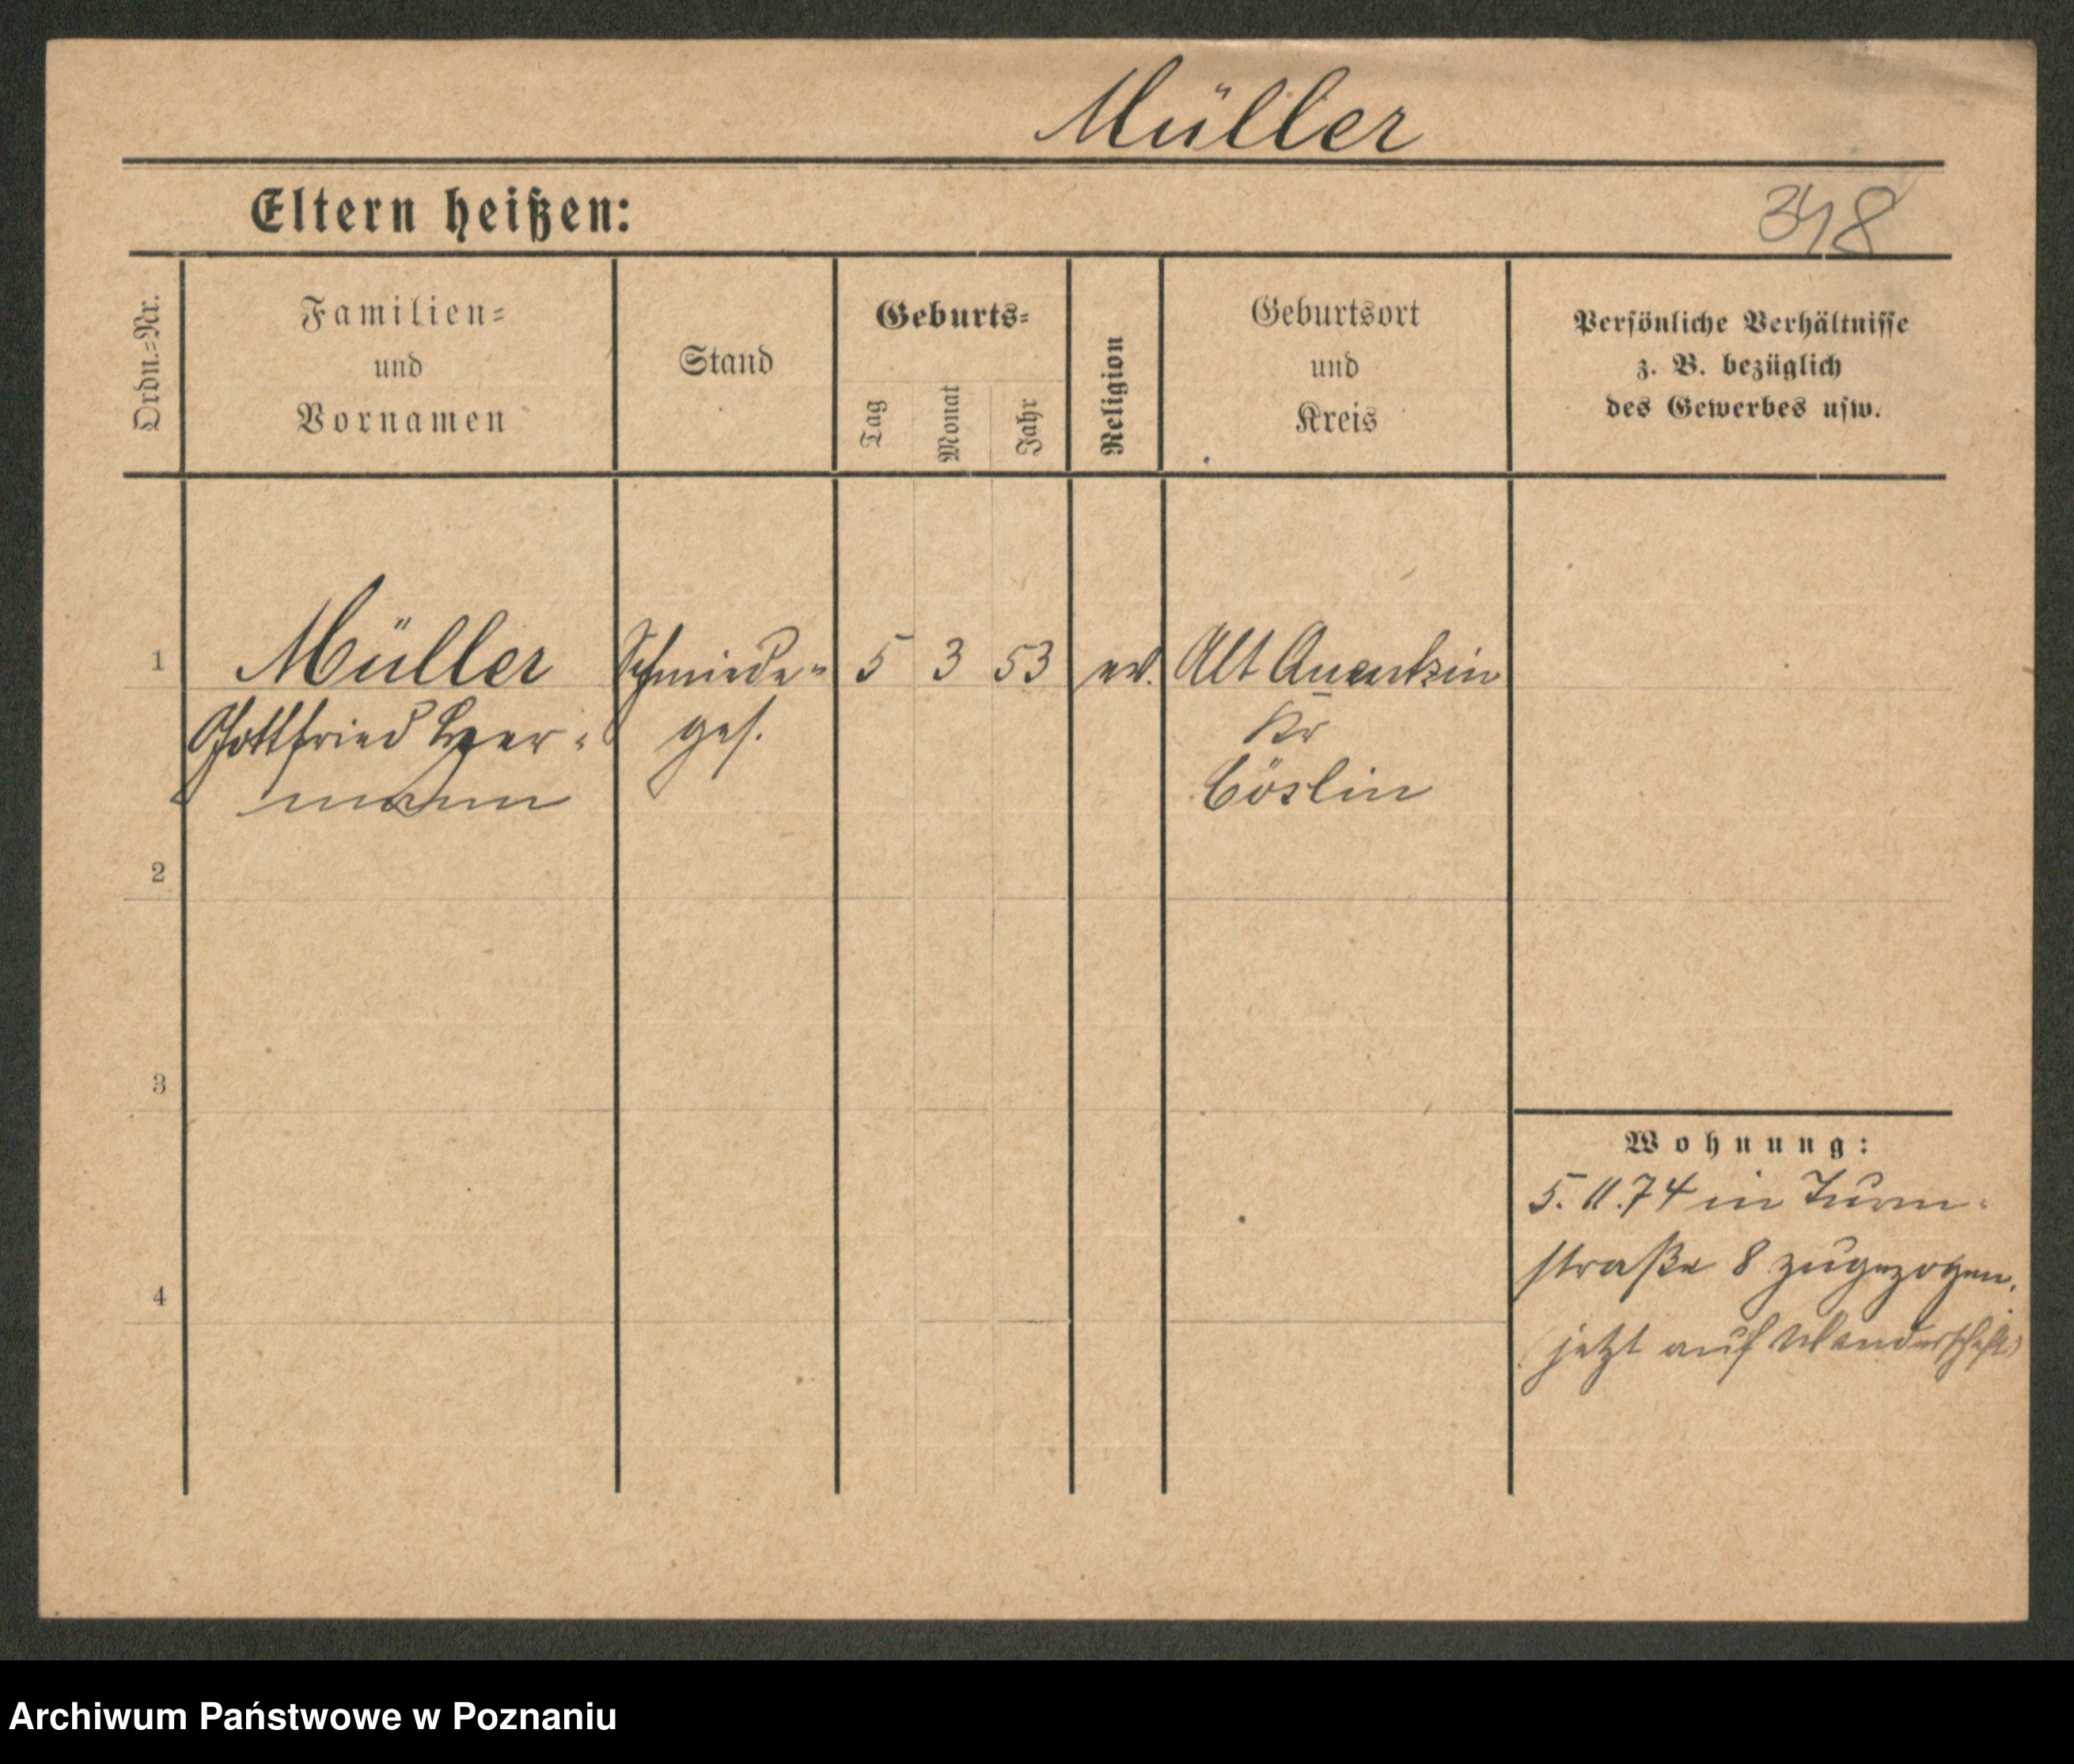 Müller
Eltern heißen:
348
Ordn.=Nr.
Familien=
und
Vornamen
Stand
Geburts=
Tag
Monat
Jahr
Religion
Geburtsort
und
Kreis
Persönliche Verhältnisse
z. B. bezüglich
des Gewerbes usw.
1 Müller Schmiede= 5 3 53 ev. Alt
Gottfried Her= ges. Kr
mann Cöslin
2
3
4
Wohnung:
5. 11. 74 in Turm=
straße 8 zugezogen.
(jetzt auf Wanderschaft)
Archiwum Państwowe w Poznaniu